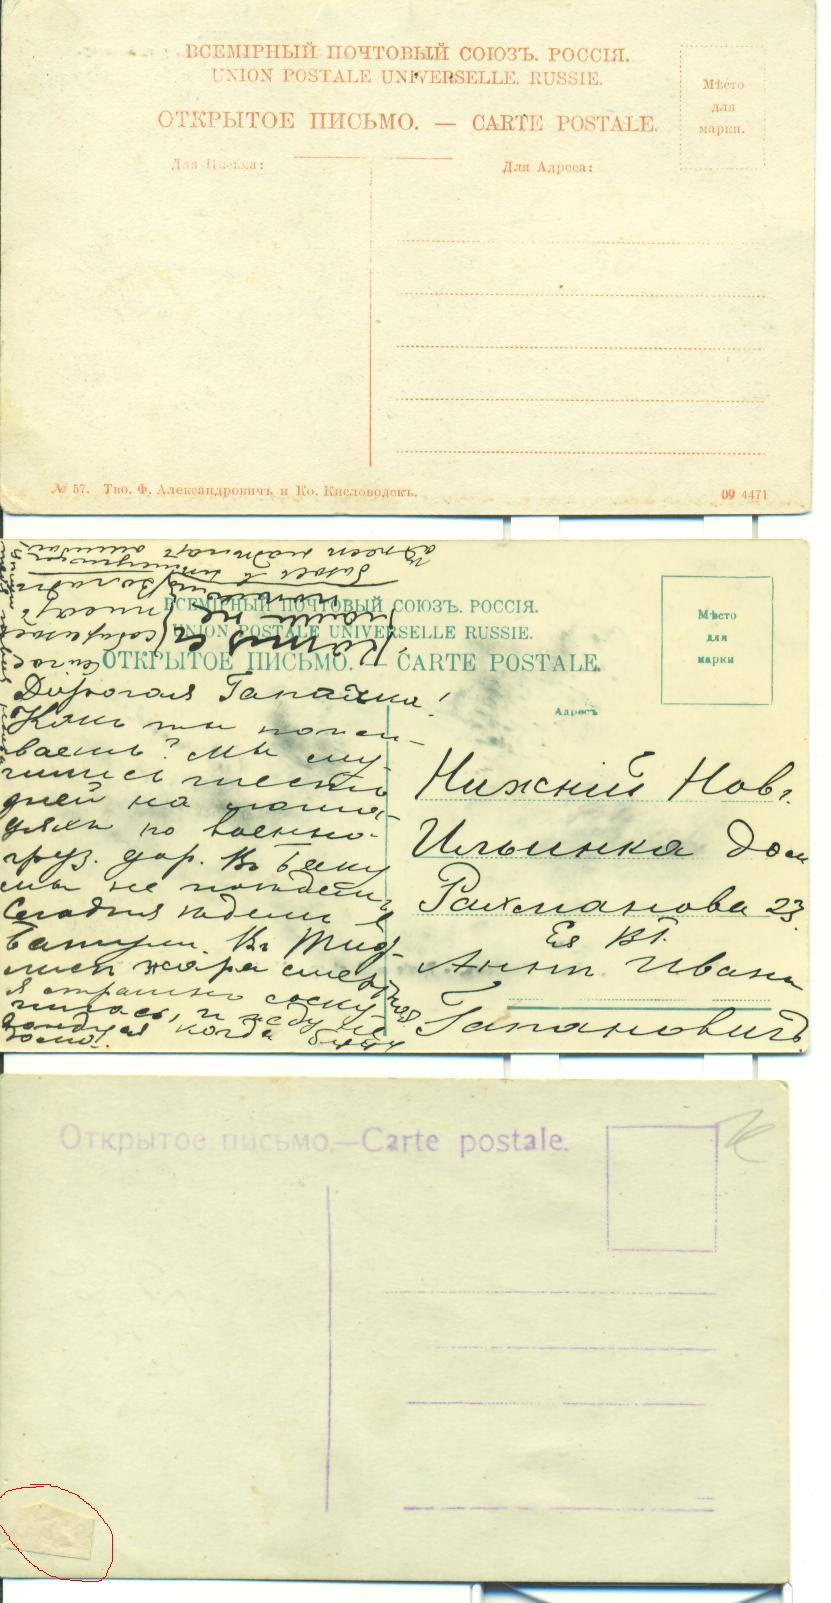 ВСЕМІРНЫЙ ПОЧТОВЫЙ СОЮЗЪ. РОССІЯ.
UNION POSTALE UNIVERSELLE. RUSSIE.
ОТКРЫТОЕ ПИСЬМО. — CARTE POSTALE.
Мѣсто
для
марки.
Для Письма:
Для Адреса:
№ 57. Тво. Ф. Александровичъ и Ко. Кисловодскъ.
09 4471
ВСЕМІРНЫЙ ПОЧТОВЫЙ СОЮЗЪ. РОССІЯ.
UNION POSTALE UNIVERSELLE RUSSIE.
ОТКРЫТОЕ ПИСЬМО. — CARTE POSTALE.
Мѣсто
для
марки
Адресъ
Дорогая Гапаичка!
Какъ ты пожи-
ваешь? Мы
дней на лоша-
дяхъ по военно-
груз. дор. Въ Баку
мы не
Сегодня ѣдемъ въ
Батумъ. Въ Тиф-
лисѣ жара
Я страшно соску-
чилась, и жду не
дождусь когда буду
дома!
Нижній Новг.
Ильинка дом
Рахманова 23.
Ея ВБ.
Аннѣ Ивановнѣ
Гапановичъ
Открытое письмо.—Carte postale.